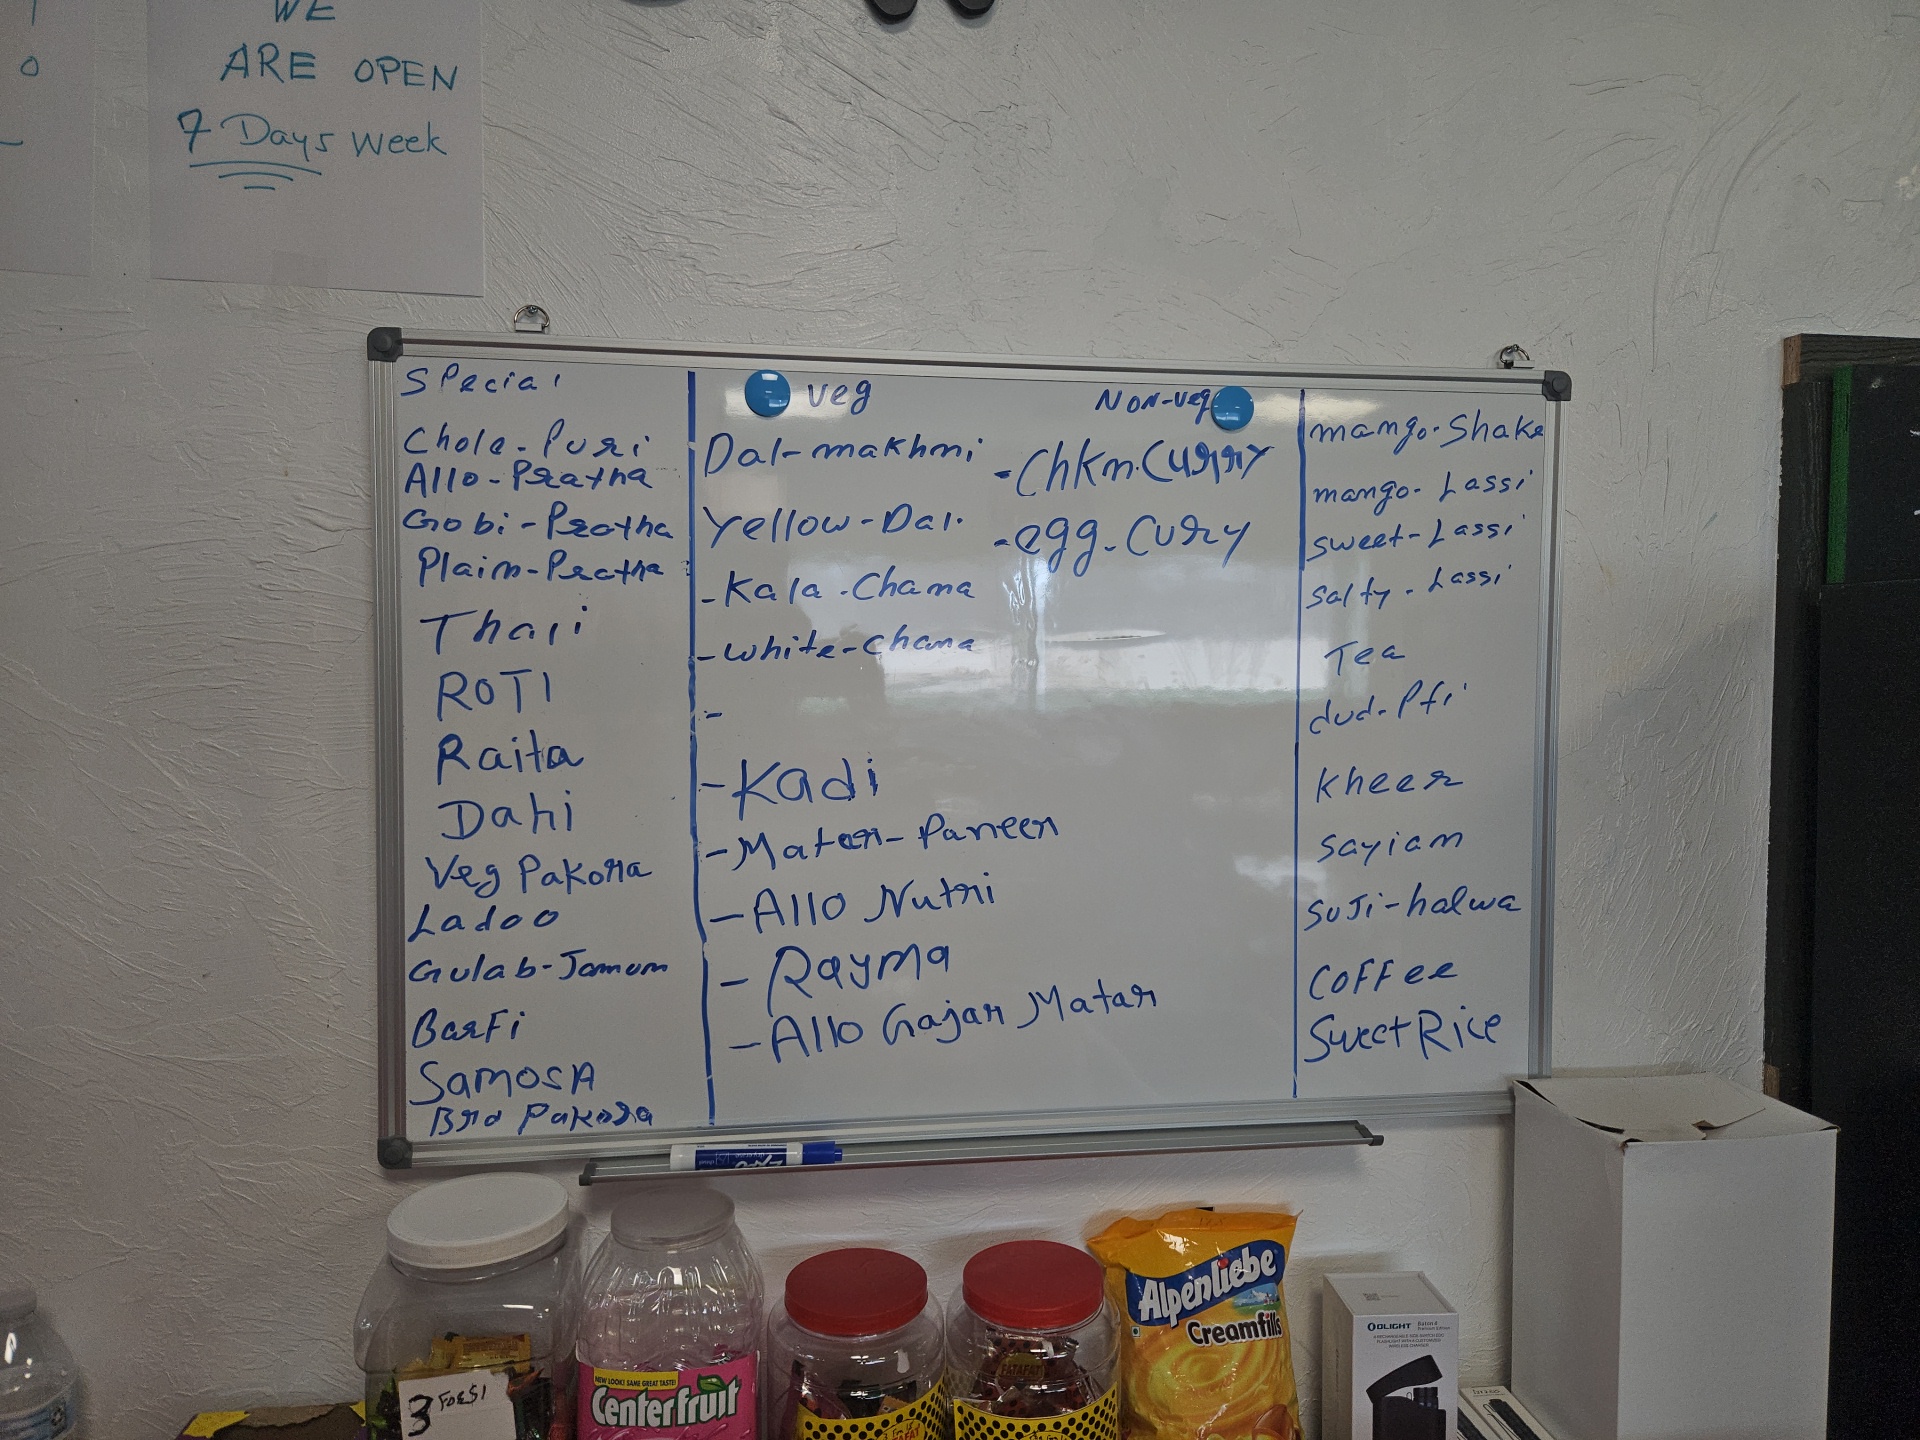 WE
ARE OPEN
7 Days Week
Special
Chole-Puri
Allo-Pratha
Gobi-Pratha
Plain-Pratha
Thali
ROTI
Raita
Dahi
Veg Pakora
Ladoo
Gulab-Jamum
Barfi
SamosA
Brd Pakora
veg
Dal-makhni
Yellow-Dal.
-Kala-Chana
-white-Chana
-
-Kadi
-Matar-Paneer
-Allo Nutri
-Rayma
-Allo Gajar Matar
Non-veg
-Chkn.Curry
-egg.Curry
mango.Shake
mango-Lassi
sweet-Lassi
salty-Lassi
Tea
dud-Pti
Kheer
sayiam
suJi-halwa
Coffee
Sweet Rice
EXPO
3 FOR $1
NEW LOOK! SAME GREAT TASTE!
Center fruit
FATAFAT
Alpenliebe
Creamfills
OLIGHT Baton 4
Premium Edition